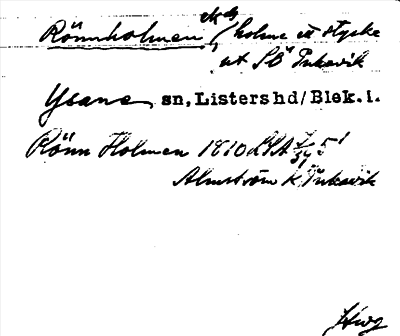 Rönnholmen, holme ett stycke
ut SO Pukavik
Ysane sn, Listers hd/Blek. l.
Rönn Holmen 1810 LSA
Almström K. Pukavik